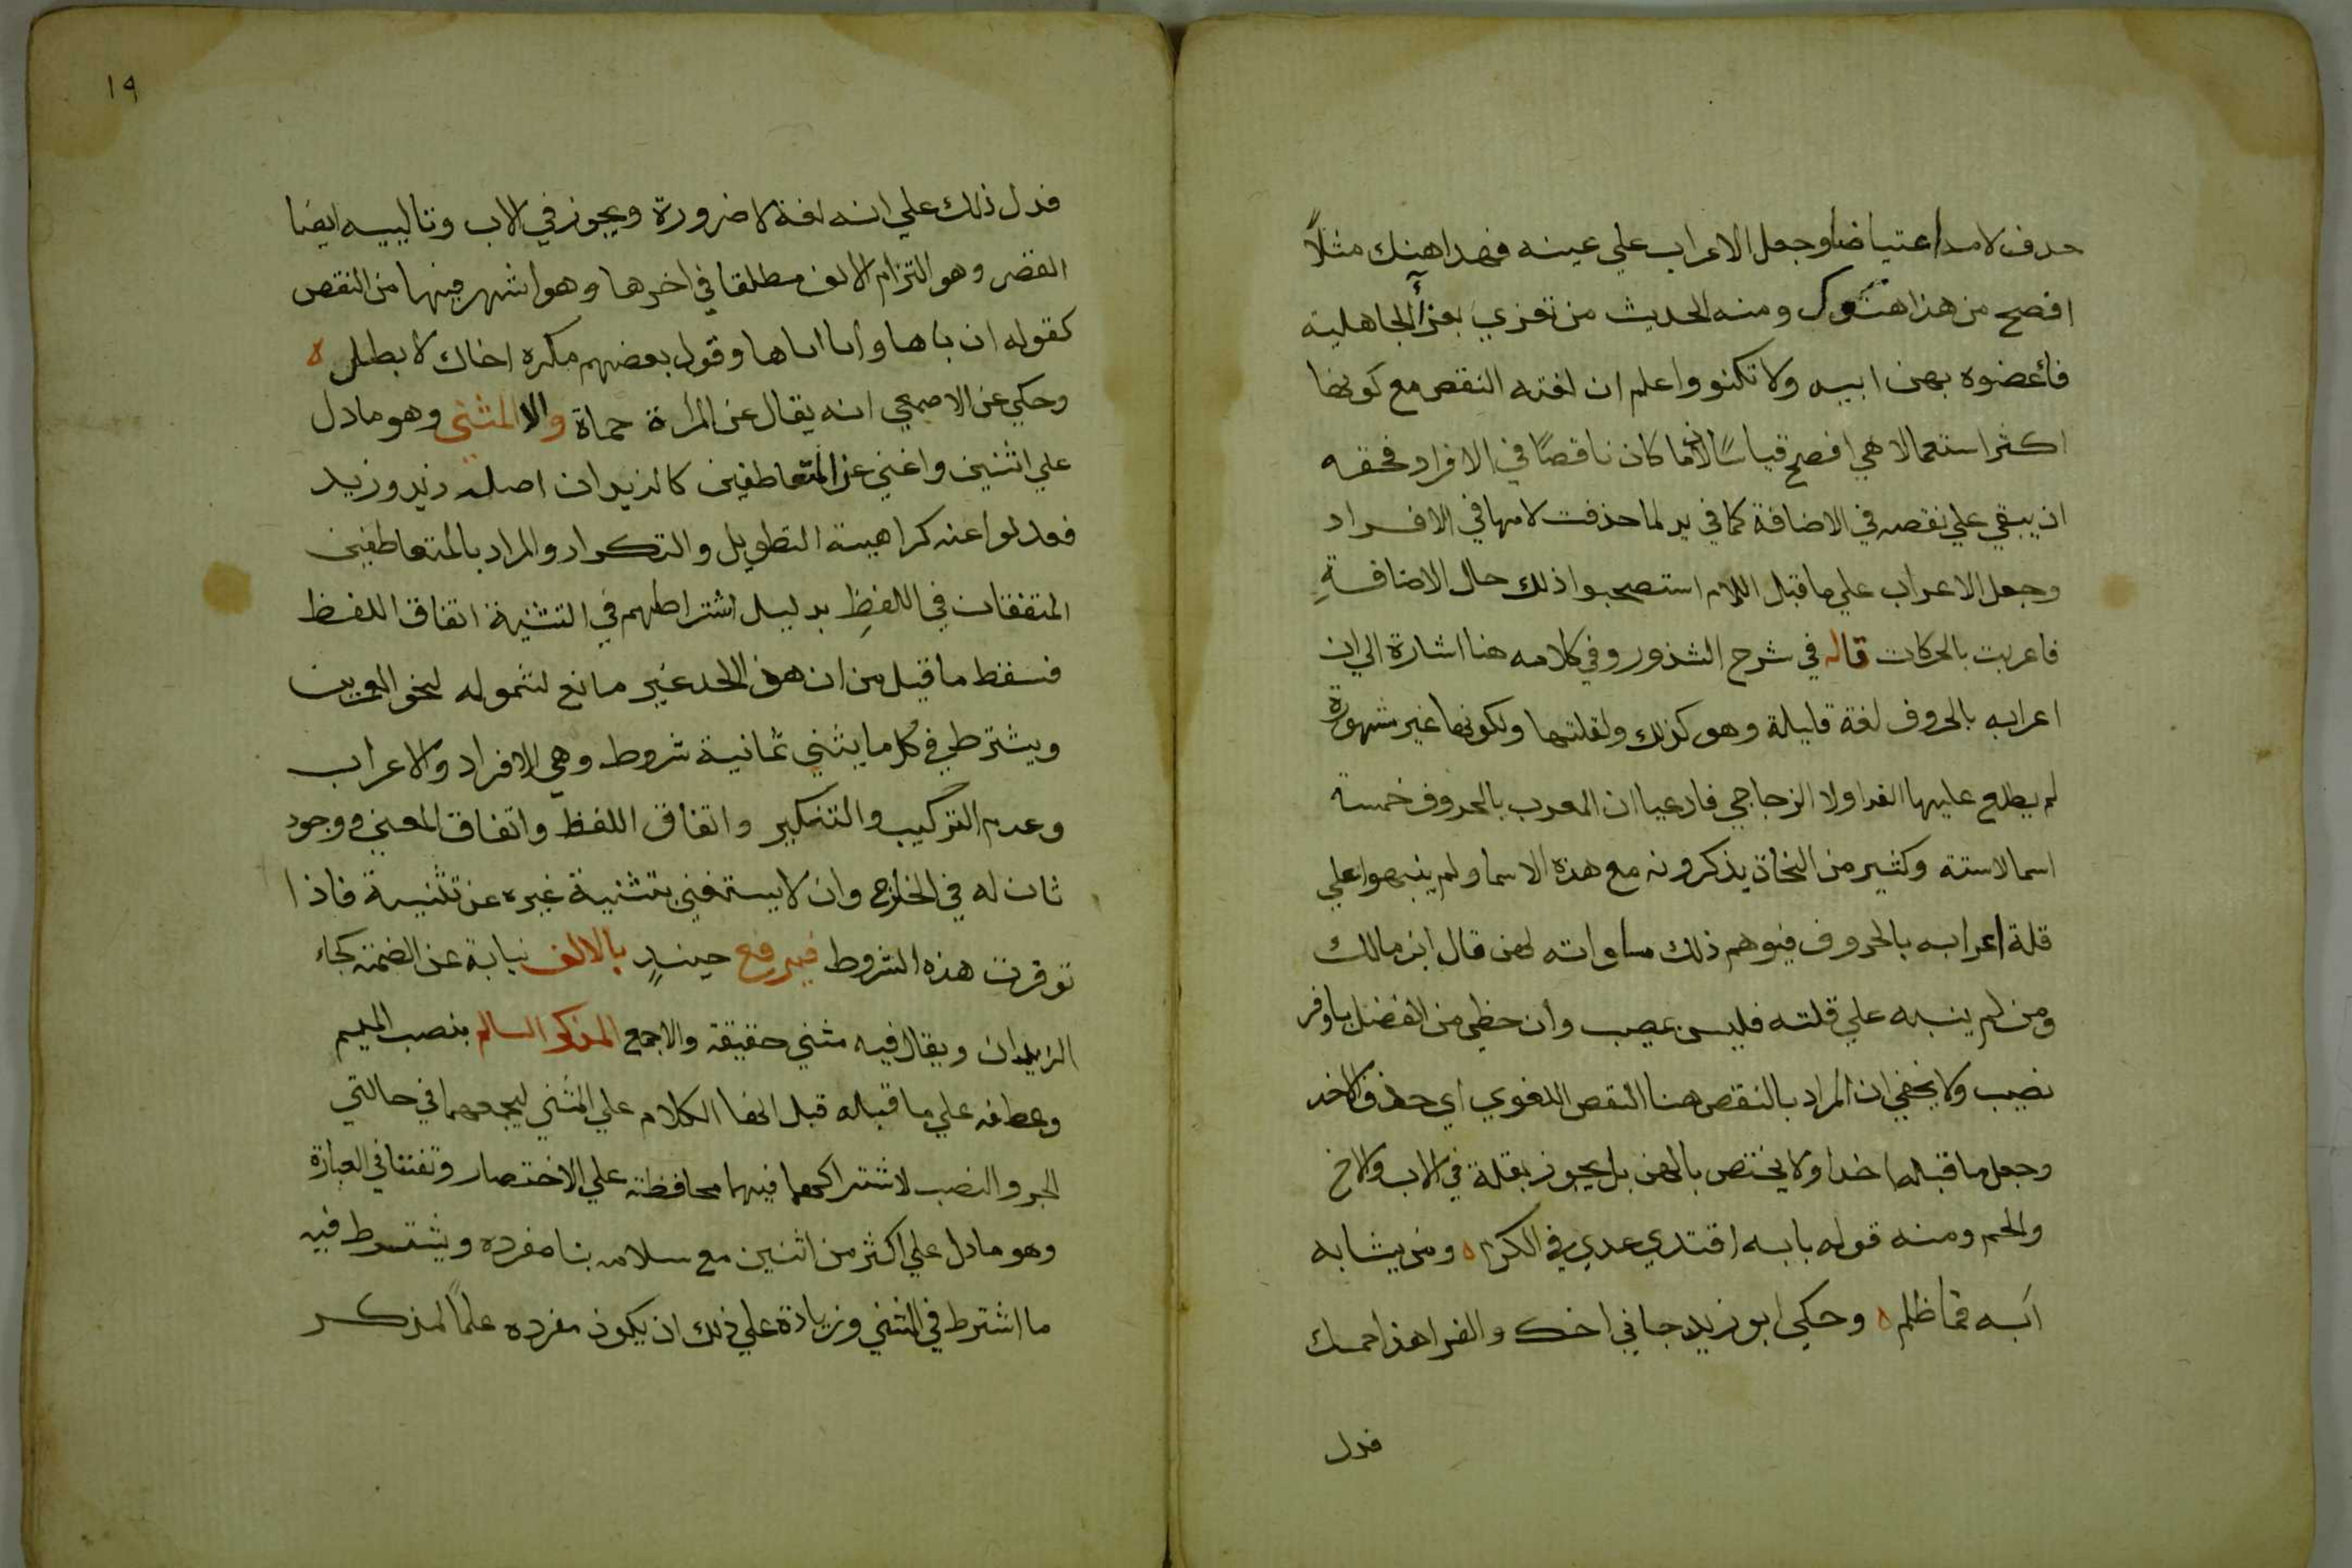 حدف لامه اعتياضا وجعل الاعراب علي عينه فهذا هنك مثلاً
افصح من هذا هنوك ومنه الحديث من تعزي بعزاء الجاهلية
فأعضوه بهن ابيه ولا تكنو واعلم ان لغة النقص مع كونها
اكثر استعمالا هي افصح قياسًا لان ما كان ناقصًا في الافراد فحقه
ان يبقي علي نقصه في الاضافة كما في يد لما حذفت لامها في الافراد
وجعل الاعراب علي ما قبل اللام استصحبوا ذلك حال الاضافةِ
فاعربت بالحركات قاله في شرح الشذور وفي كلامه هنا اشارة الي ان
اعرابه بالحروف لغة قليلة وهو كذلك ولقلتها ولكونها غير مشهورة
لم يطلع عليها الفرا ولا الزجاجي فادعيا ان المعرب بالحروف خمسة
اسما لا ستة وكثير من النحاة يذكرونه مع هذه الاسما ولم ينبهوا علي
قلة اعرابه بالحروف فيوهم ذلك مساواته لهن قال ابن مالك
ومن لم ينبه علي قلته فليس بمصيب وان حظي من الفضل باوفر
نصيب ولا يخفي ان المراد بالنقص هنا النقص اللغوي اي حذف الاخر
وجعل ما قبلها اخرا ولا يختص بالهن بل يجوز بقلة في الاب والاخ
والحم ومنه قوله بابه اقتدي عدي في الكرم ه ومن يشابه
ابه فما ظلم ه وحكي ابو زيد جاني اخك والفرا هذا حمك
فدل
فدل ذلك علي انه لغة لا ضرورة ويجوز في الاب وتالييه ايضا
القصر وهو التزام الالف مطلقا في اخرها وهو اشهر فيها من النقص
كقوله ان باها وابا اباها وقول بعضهم مكره اخاك لا بطل ه
وحكي عن الاصمعي انه يقال عن المراة حماة والا المثني وهو ما دل
علي اثنين واغني عن المتعاطفين كالزيدان اصله زيد وزيد
فعدلوا عنه كراهية التطويل والتكرار والمراد بالمتعاطفين
المتفقان في اللفظِ بدليل اشتراطهم في التثنية اتفاق اللفظ
فسقط ما قيل من ان هذ الحد غير مانع لشموله لنحو العمرين
ويشترط في كل ما يثني ثمانية شروط وهي الافراد والاعراب
وعدم التركيب والتنكير واتفاق اللفظ واتفاق المعني ووجود
ثان له في الخارج وان لا يستغني بتثنية غيره عن تثنيته فاذا
توفرت هذه الشروط فيرفع حينيدٍ بالالف نيابة عن الضمة كجاء
الزيدان ويقال فيه مثني حقيقة والا جمع المذكر السالم بنصب الميم
وعطفه علي ما قبله قبل انها الكلام علي المثني ليجمعهما في حالتي
الجر والنصب لاشتراكهما فيهما محافظة علي الاختصار وتفننا في العبارة
وهو ما دل علي اكثر من اثنين مع سلامة بنا مفرده ويشترط فيه
ما اشترط في المثني وزيادة علي ذلك ان يكون مفرده علمًا لمذكر
١٩